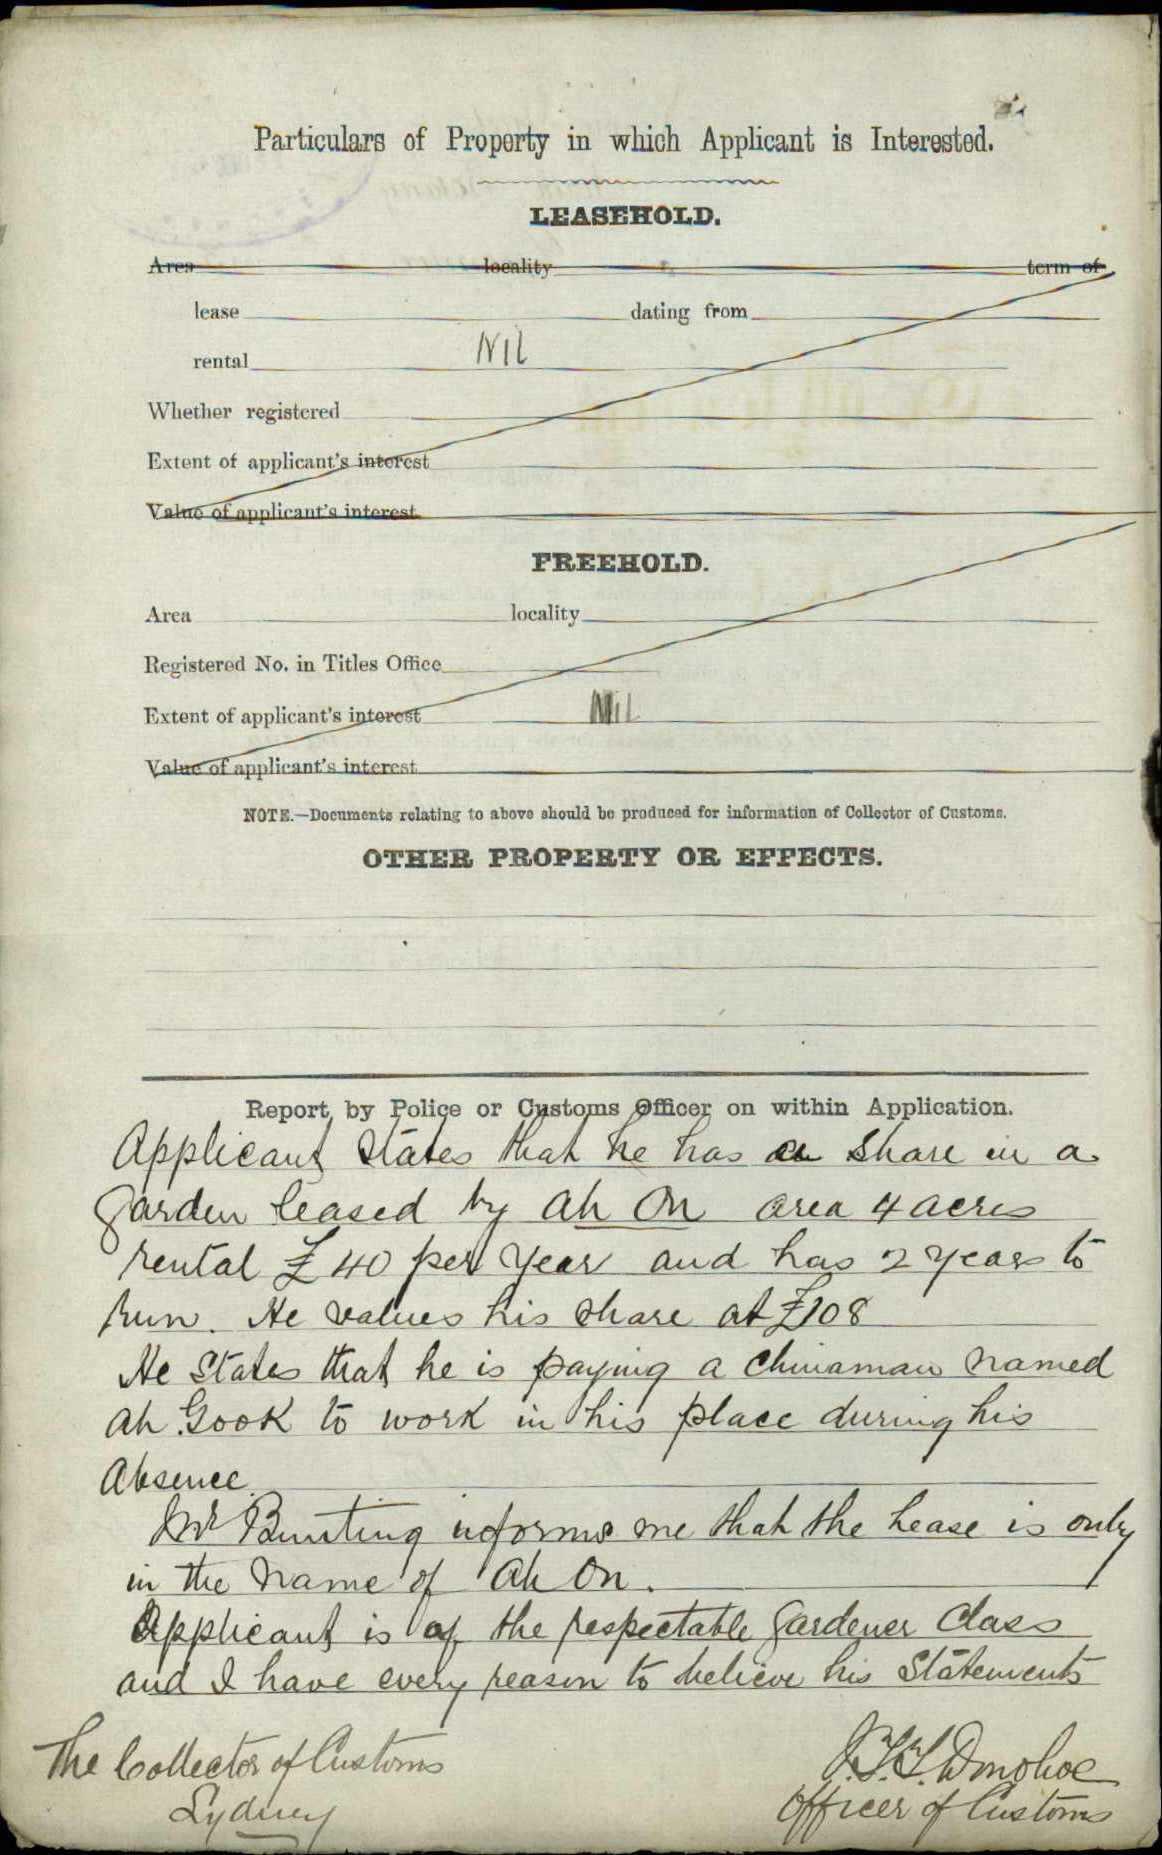 Particulars of Property in which Applicant is Interested.
LEASEHOLD.
Area locality term of
lease dating from
rental Nil
Whether registered
Extent of applicant's interest
Value of applicant's interest
FREEHOLD.
Area locality
Registered No. in Titles Office
Extent of applicant's interest Nil
Value of applicant's interest
NOTE.—Documents relating to above should be produced for information of Collector of Customs.
OTHER PROPERTY OR EFFECTS.
Report by Police or Customs Officer on within Application.
Applicant states that he has a share in a
garden leased by Ah On area 4 acres
rental £40 per year and has 2 years to
run. He values his share at £108
He states that he is paying a Chinaman named
Ah Gook to work in his place during his
Absence.
Mr Bunting informs me that the lease is only
in the name of Ah On.
Applicant is of the respectable gardener Class
and I have every reason to believe his Statements
The Collector of Customs
Sydney
Donohoe
Officer of Customs